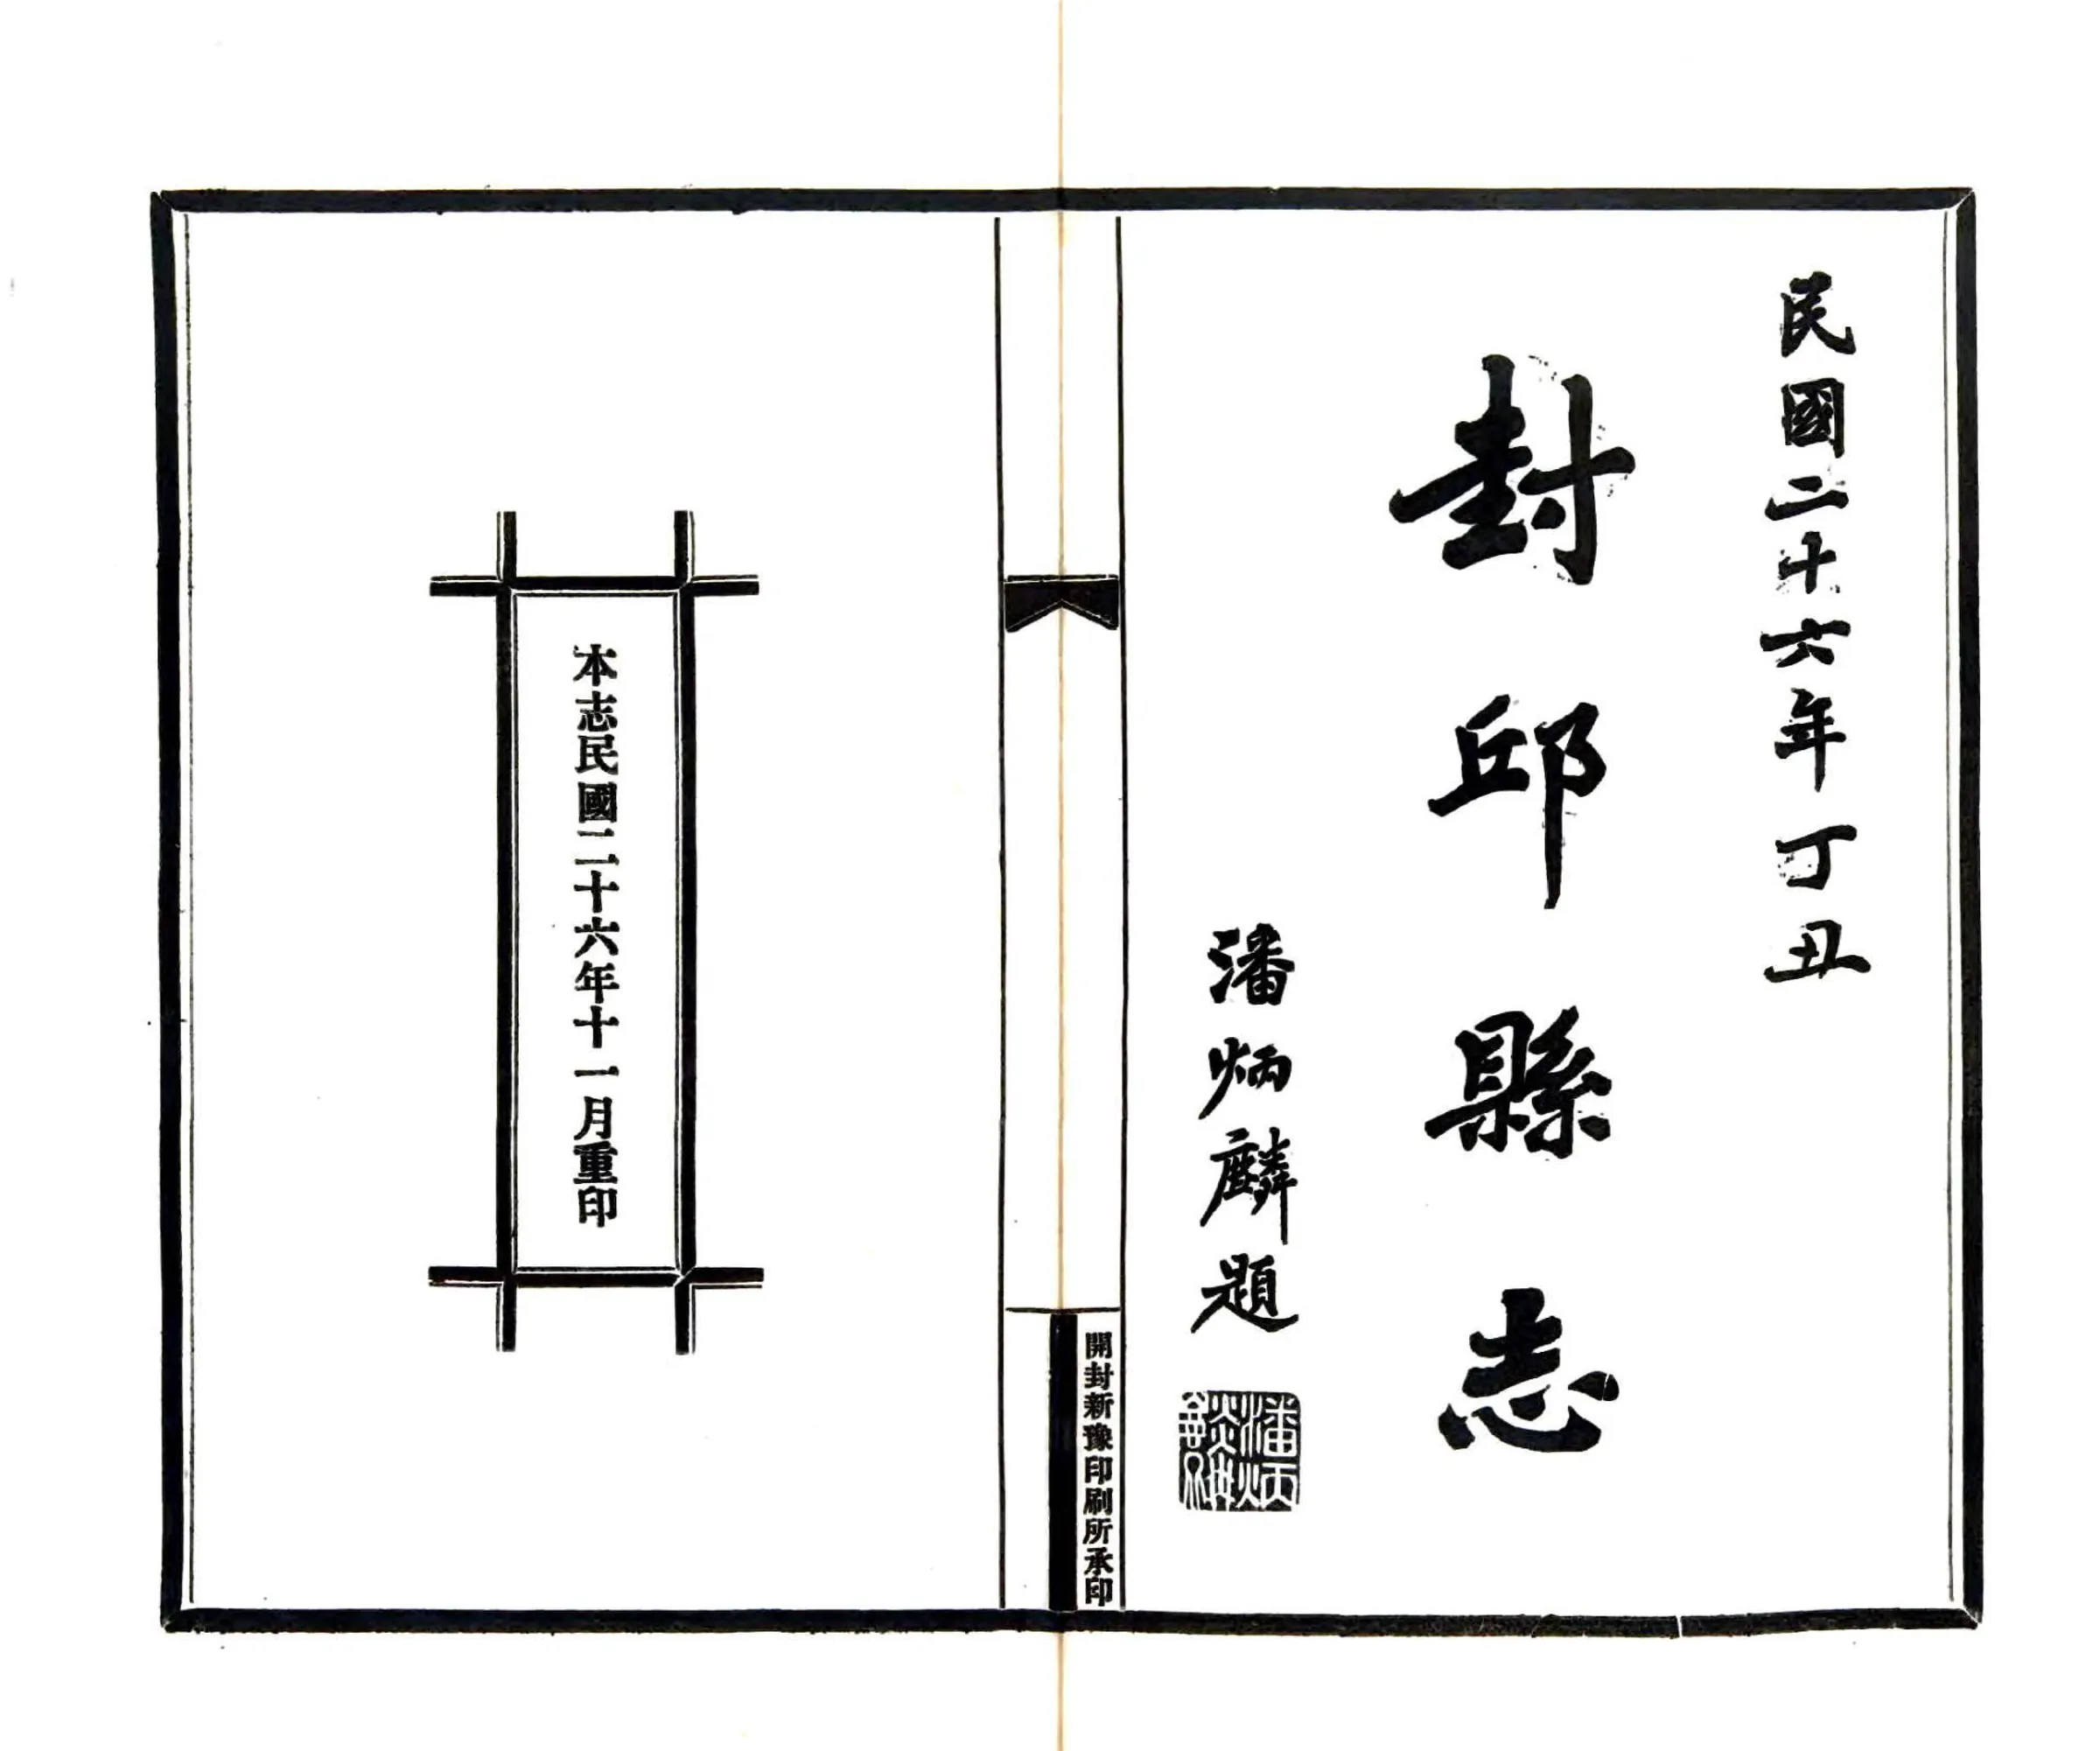 民國二十六年丁丑
封邱縣志
潘炳麟題
開封新豫印刷所承印
本志民國二十六年十一月重印